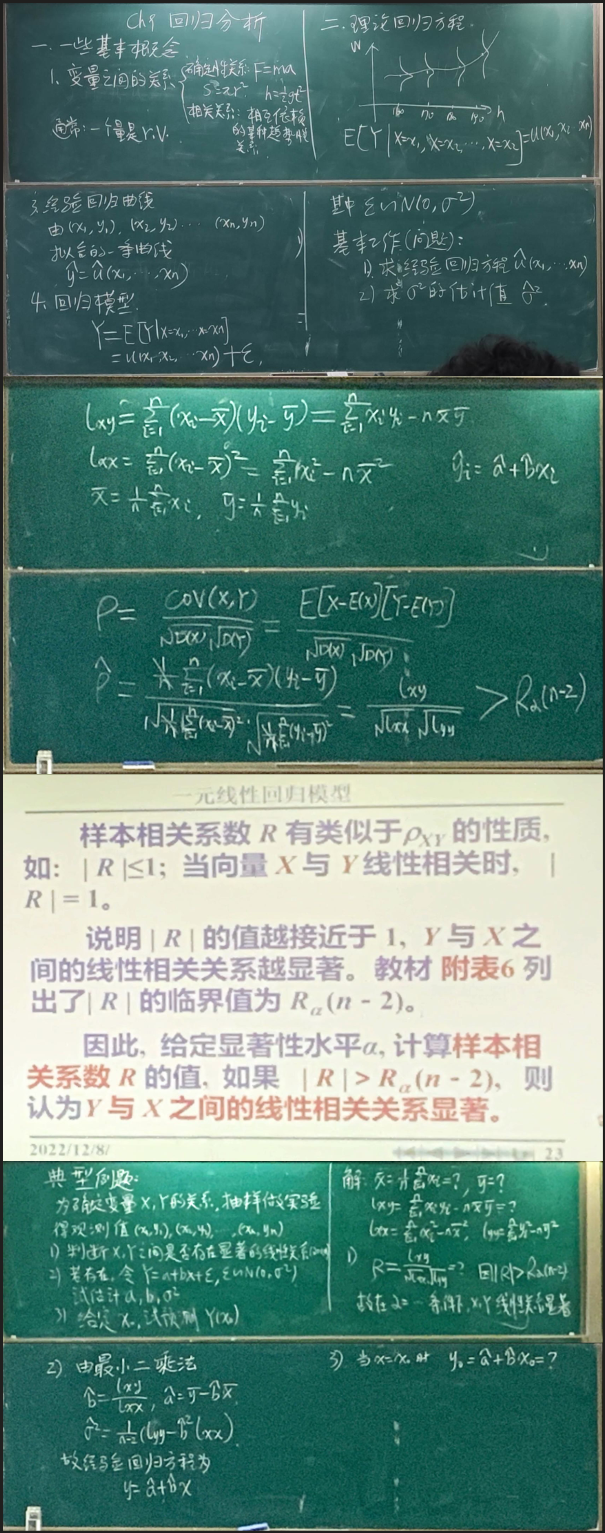 Ch9 回归分析
一. 一些基本概念
1. 变量之间的关系
确定性关系: F=ma
S=πr² h=½gt²
相关关系: 相互依赖
的某种趋势性
关系.
通常: 一个量是r.v.
二. 理论回归方程.
W
160 170 180 190 h
E[Y|X=x₁, X=x₂, ⋯, X=x₂]=u(x₁,x₂ ⋯ xn)
3. 经验回归曲线
由(x₁, y₁), (x₂, y₂) ⋯⋯ (xn, yn)
拟合的一条曲线
ŷ=û(x₁, ⋯, xn)
4. 回归模型
Y=E[Y|X=x₁, ⋯ x=xn]
=u(x₁ x₂, ⋯ xn)+ε,
其中 ε∼N(0, σ²)
基本工作(问题):
1) 求经验回归方程 û(x₁, ⋯, xn)
2) 求σ²的估计值 σ̂².
lxy=∑ⁿᵢ₌₁(xᵢ-x̄)(yᵢ-ȳ)=∑ⁿᵢ₌₁xᵢyᵢ-nx̄ȳ
lxx=∑ⁿᵢ₌₁(xᵢ-x̄)²=∑ⁿᵢ₌₁xᵢ²-nx̄²
ŷᵢ=â+b̂xᵢ
x̄=1/n ∑ⁿᵢ₌₁xᵢ, ȳ=1/n ∑ⁿᵢ₌₁yᵢ
ρ=COV(X,Y)/(√D(X) √D(Y))=E[X-E(X)][Y-E(Y)]/(√D(X) √D(Y))
ρ̂=(1/n ∑ⁿᵢ₌₁(xᵢ-x̄)(yᵢ-ȳ))/(√(1/n ∑ⁿᵢ₌₁(xᵢ-x̄)²)·√(1/n ∑ⁿᵢ₌₁(yᵢ-ȳ)²))=lxy/(√lxx √lyy) > Rα(n-2)
一元线性回归模型
样本相关系数 R 有类似于ρXY 的性质,
如: | R |≤1; 当向量 X 与 Y 线性相关时, |
R | = 1。
说明 | R | 的值越接近于 1, Y 与 X 之
间的线性相关关系越显著。教材 附表6 列
出了| R | 的临界值为 Rα(n - 2)。
因此, 给定显著性水平α, 计算样本相
关系数 R 的值, 如果 | R | > Rα(n - 2), 则
认为Y 与 X 之间的线性相关关系显著。
2022/12/8/
23
典型例题:
为确定变量X,Y的关系, 抽样做实验
得观测值(x₁,y₁), (x₂,y₂) ⋯, (xn, yn)
1) 判断X,Y之间是否存在显著的线性关系
2) 若存在, 令Y=a+bx+ε, ε∼N(0, σ²)
试估计a, b, σ²
3) 给定x₀, 试预测Y(x₀)
解: x̄=1/n ∑ⁿᵢ₌₁xᵢ=?, ȳ=?
lxy=∑ⁿᵢ₌₁xᵢyᵢ-nx̄ȳ=?
lxx=∑ⁿᵢ₌₁xᵢ²-nx̄², lyy=∑ⁿᵢ₌₁yᵢ²-nȳ²
1) R=lxy/(√lxx √lyy)=? 因|R|>Rα(n-2)
故在α=一条件下, X,Y线性关系显著
2) 由最小二乘法
b̂=lxy/lxx, â=ȳ-b̂x̄
σ̂²=1/(n-2)(lyy-b̂²lxx)
故经验回归方程为
y=â+b̂x
3) 当x=x₀时 y₀=â+b̂x₀=?